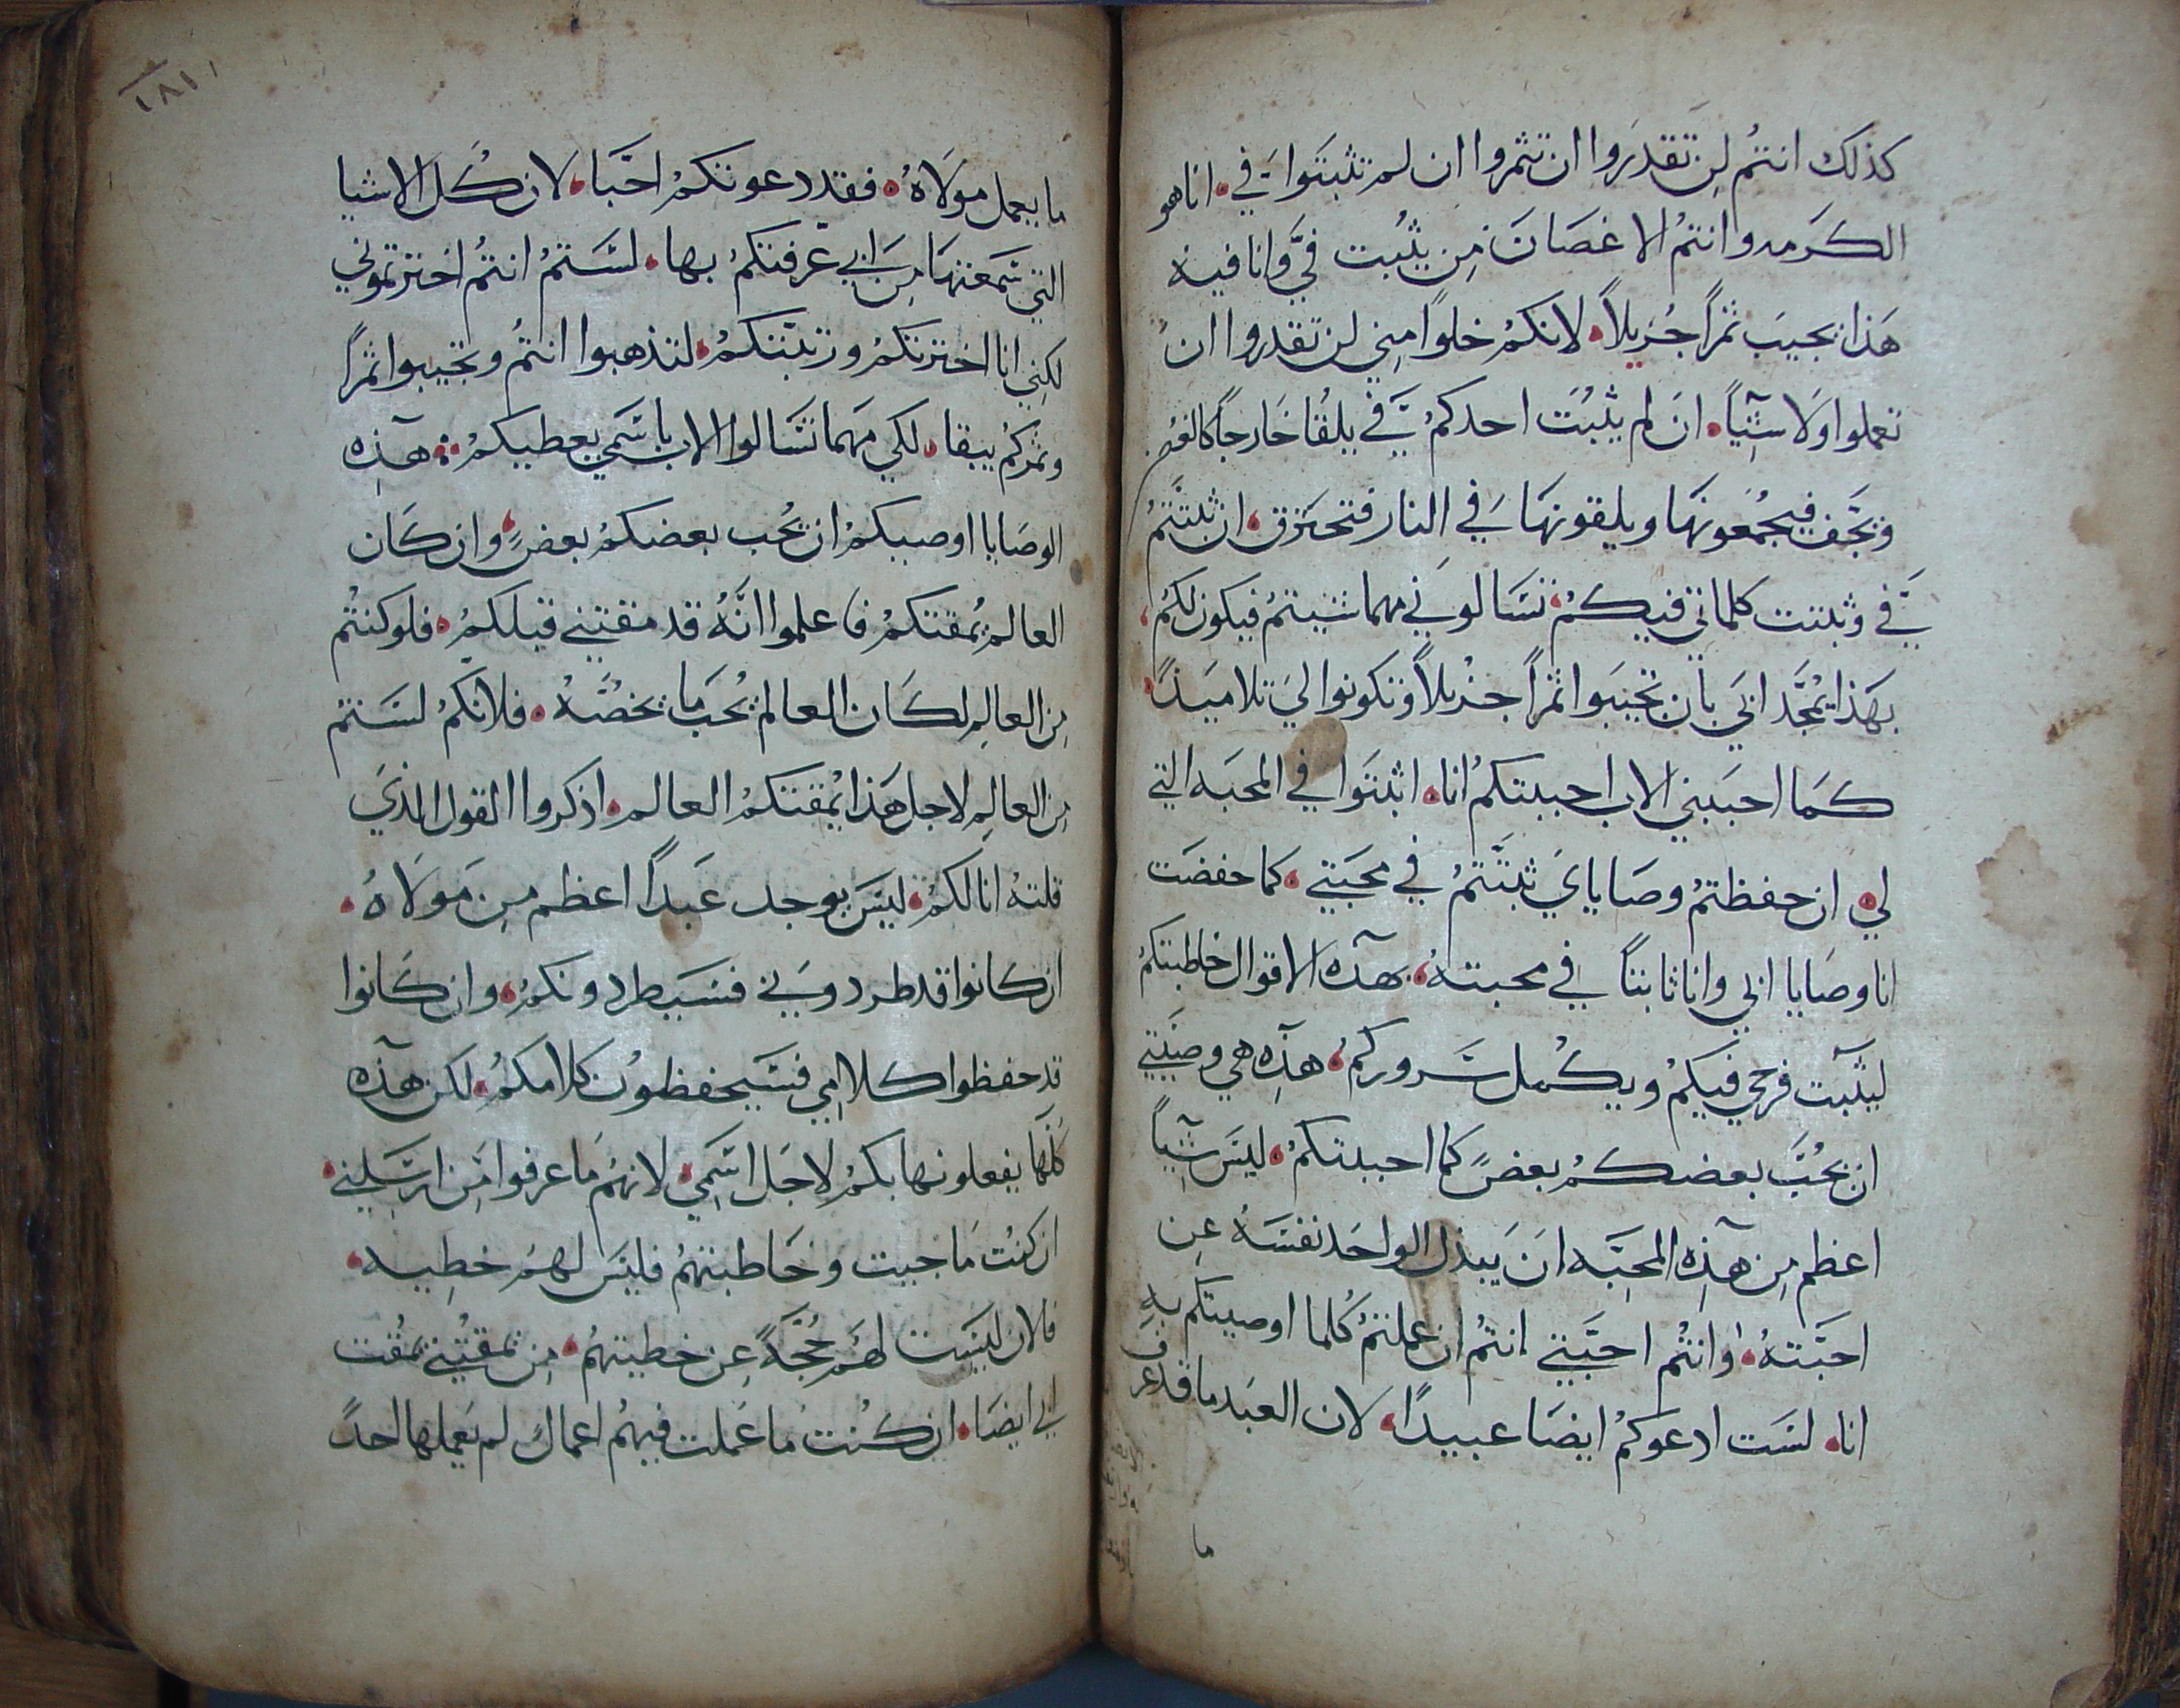 كذلك انتم لن تقدروا ان تثمروا ان لم تثبتوا في انا هو
الكرمه وانتم الاغصان من يثبت فيَّ وانا فيه
هذا يجيب ثمراً جزيلاً لانكم خلواً مني لن تقدروا ان
تعملوا ولا شياً ان لم يثبت احدكم فيَّ يلقا خارجاً كالغصن
وتجف فيجمعونها ويلقونها في النار فتحترق ان ثبتتم
فيَّ وثبتت كلماتي فيكم تسالوني مهما شيتم فيكون لكم
بهذا يُمجَّد ابي بان تجيبوا ثمراً جزيلاً وتكونوا لي تلاميذً
كما احبني الاب احببتكم انا اثبتوا في المحبه التي
لي ان حفظتم وصاياي ثبتتم في محبتي كما حفضت
انا وصايا ابي وانا ثابتاً في محبته بهذه الاقوال خاطبتكم
ليثبت فرحي فيكم ويكمل سروركم هذه هي وصيتي
ان يحُبَّ بعضكم بعضً كما احببتكم ليس شياً
اعظم من هذه المحبَّه ان يبذل الواحد نفسه عن
احبَّته وانتم احبَّتي انتم ان عملتم كلما اوصيتكم به
انا لست ادعوكم ايضا عبيداً لان العبد ما قد عرف
ما
١٨١
ما يعمل مولاهُ فقد دعوتكم احبَّا لان كل الاشيا
التي سمعتها من ابي عرَّفتكم بها لستم انتم اخترتموني
لكني انا اخترتكم ورتبتكم لتذهبوا انتم وتجيبوا ثمراً
وثمركم يبقا لكي مهما تسالوا الاب باسمي يعطيكم هذه
الوصايا اوصيكم ان يحُب بعضكم بعضٍ وان كان
العالم يُمقتكم فاعلموا انَّهُ قد مقتني قبلكم فلو كنتم
من العالم لكان العالم يُحب ما يخصُّه فلانَّكم لستم
من العالم لاجل هذا يُمقتكم العالم اذكروا القول الذي
قلته انا لكم ليس يوجد عبداً اعظم من مولاهُ
ان كانوا قد طردوني فسيطردونكم وان كانوا
قد حفظوا كلامي فسيحفظون كلامكم لكن هذه
كلها يفعلونها بكم لاجل اسمي لانهم ما عرفوا من ارسلني
ان كنت ما جيت وخاطبتهم فليس لهم خطيه
فالان ليست لهم حُجَّةً عن خطيتهم من يمقُتني يمقُت
ابي ايضا ان كنت ما عملت فيهم اعمال لم يعملها احدً